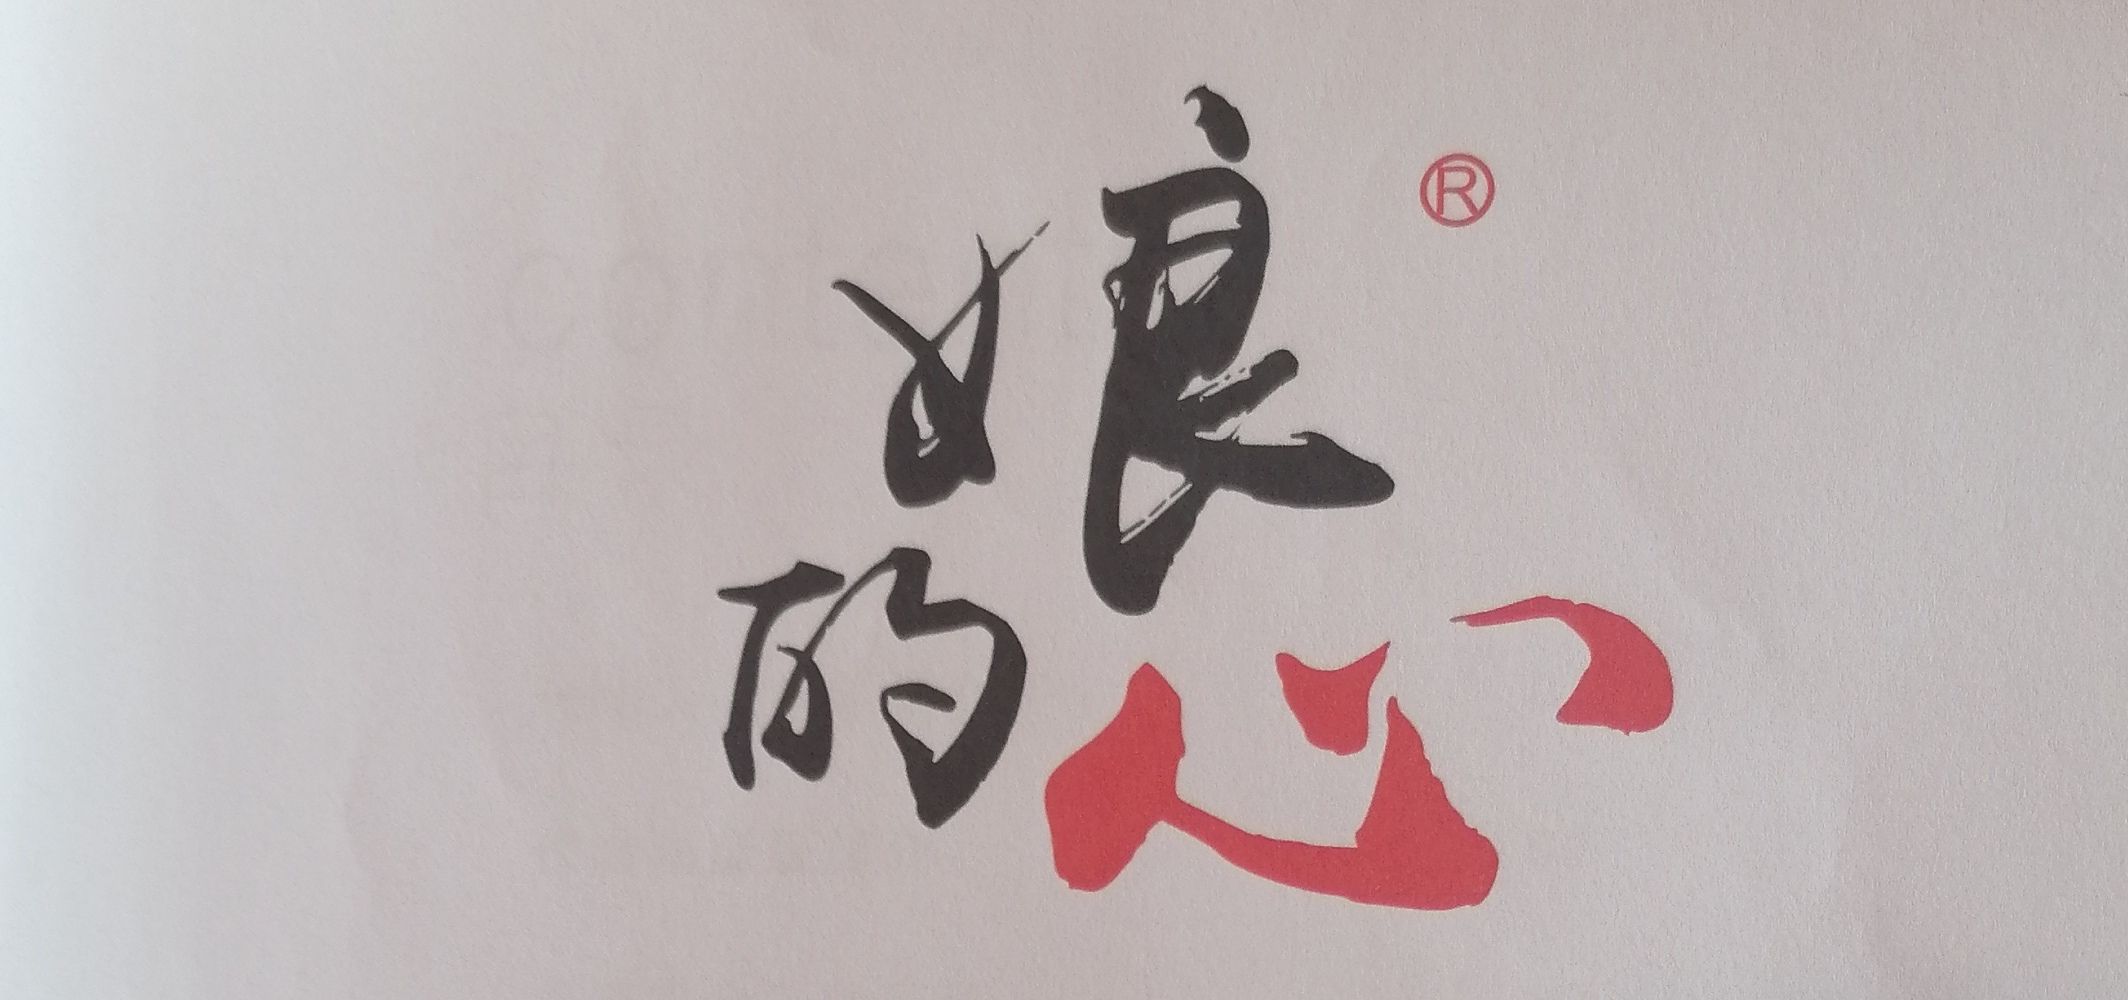 娘®
的心